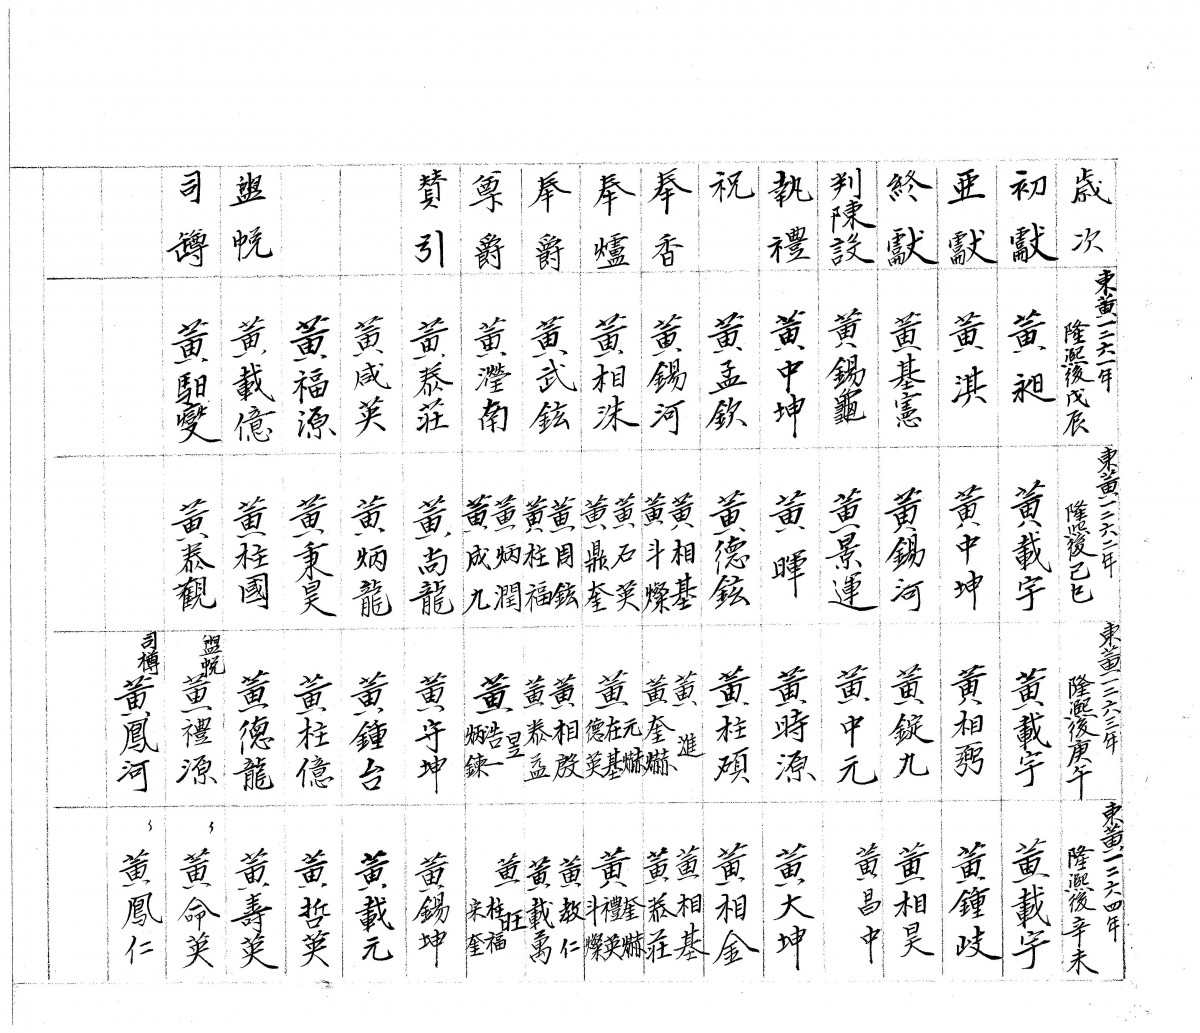 歲次
初獻
亞獻
終獻
判陳設
執禮
祝
奉香
奉爐
奉爵
奠爵
賛引
盥帨
司罇
東黃一二六一年
隆熙後戊辰
黃昶
黃淇
黃基憲
黃錫龜
黃中坤
黃孟欽
黃錫河
黃相洙
黃武鉉
黃瀅南
黃泰莊
黃咸英
黃福源
黃載億
黃馹變
東黃一二六二年
隆熙後己巳
黃載宇
黃中坤
黃錫河
黃景運
黃暉
黃德鉉
黃相基
黃斗燦
黃石英
黃鼎奎
黃周鉉
黃柱福
黃炳潤
黃成九
黃尚龍
黃炳龍
黃秉昊
黃柱國
黃泰觀
東黃一二六三年
隆熙後庚午
黃載宇
黃相弼
黃錠九
黃中元
黃時源
黃柱碩
黃進
黃奎爀
黃元爀
在基
德英
黃相殷
黃泰益
黃昱
浩一
炳鍊
黃守坤
黃鍾台
黃柱億
黃德龍
盥帨
黃禮源
司樽
黃鳳河
東黃一二六四年
隆熙後辛未
黃載宇
黃鍾岐
黃相昊
黃昌中
黃大坤
黃相金
黃相基
黃泰莊
黃奎爀
禮英
斗燦
黃敎仁
黃載萬
黃旺
柱福
來奎
黃錫坤
黃載元
黃哲英
黃壽英
〃
黃命英
〃
黃鳳仁